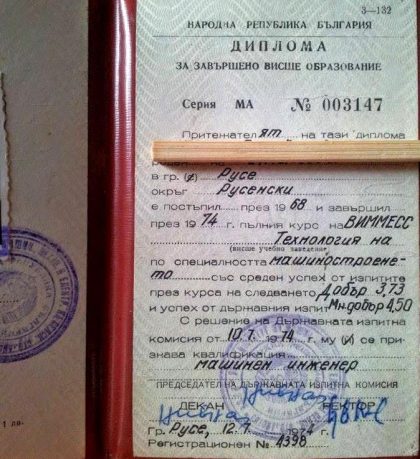 З—132
НАРОДНА РЕПУБЛИКА БЪЛГАРИЯ
ДИПЛОМА
ЗА ЗАВЪРШЕНО ВИСШЕ ОБРАЗОВАНИЕ
Серия МА № 003147
Притежателят на тази диплома
в гр. (с) Русе
окръг Русенски
е постъпил през 1968 и завършил
през 1974 г. пълния курс на ВИММЕСС
(висше учебно заведение)
Технология на
по специалността машиностроене-
то със среден успех от изпитите
през курса на следването Добър 3,73
и успех от държавния изпит Мн. добър 4,50
С решение на Държавната изпитна
комисия от 10.7.1974 г. му (ѝ) се при-
знава квалификация
машинен инженер
ПРЕДСЕДАТЕЛ НА ДЪРЖАВНАТА ИЗПИТНА КОМИСИЯ
ДЕКАН РЕКТОР
Гр. Русе, 12.7.1974 г.
Регистрационен № 4398